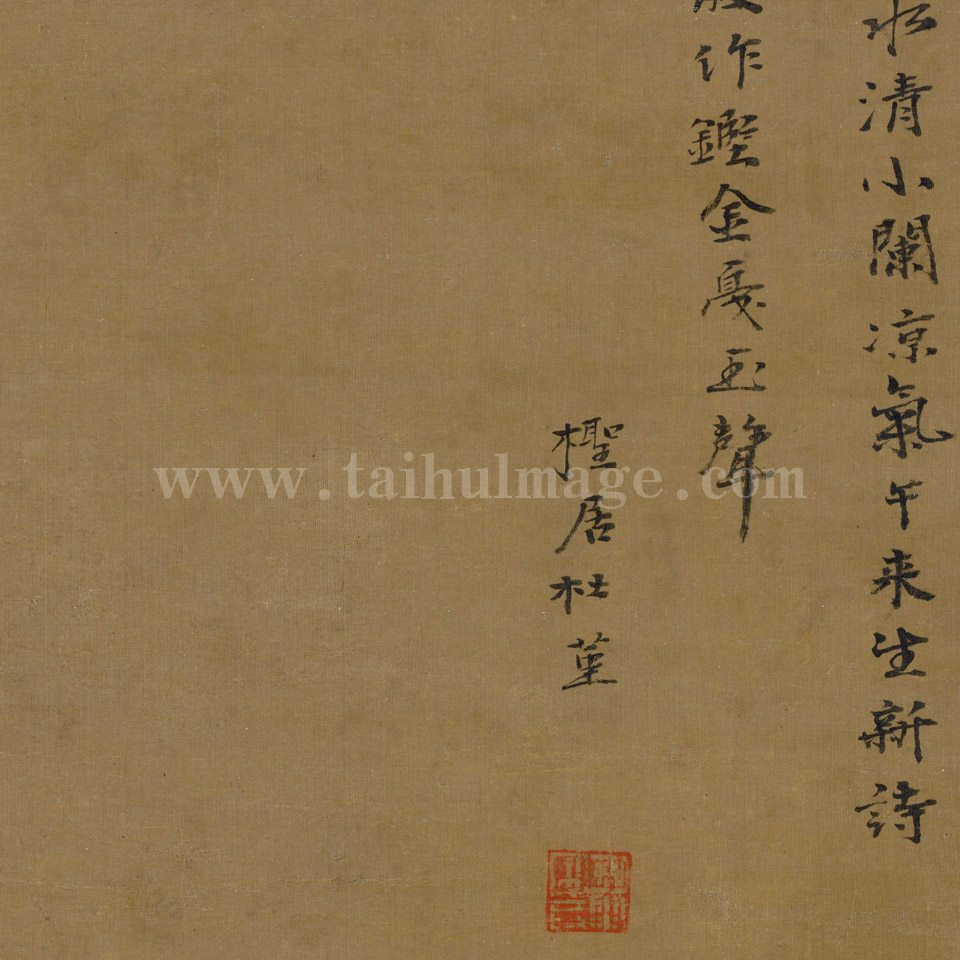 水清小闌凉氣午来生新詩
作鏗金戛玉聲
檉居杜堇
www.taihuImage.com